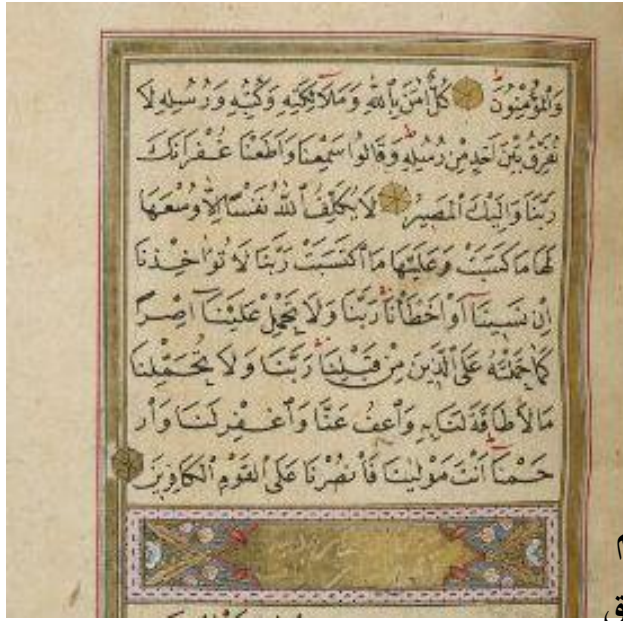 وَالْمُؤْمِنُونَ كُلٌّ اٰمَنَ بِاللّٰهِ وَمَلٰٓئِكَتِهِ وَكُتُبِهِ وَرُسُلِهِ لَا
نُفَرِّقُ بَيْنَ اَحَدٍ مِنْ رُسُلِهِ وَقَالُوا سَمِعْنَا وَاَطَعْنَا غُفْرَانَكَ
رَبَّنَا وَاِلَيْكَ الْمَصِيرُ لَا يُكَلِّفُ اللّٰهُ نَفْسًا اِلَّا وُسْعَهَا
لَهَا مَا كَسَبَتْ وَعَلَيْهَا مَا اكْتَسَبَتْ رَبَّنَا لَا تُؤَاخِذْنَا
اِنْ نَسِينَا اَوْ اَخْطَأْنَا رَبَّنَا وَلَا تَحْمِلْ عَلَيْنَا اِصْرًا
كَمَا حَمَلْتَهُ عَلَى الَّذِينَ مِنْ قَبْلِنَا رَبَّنَا وَلَا تُحَمِّلْنَا
مَا لَا طَاقَةَ لَنَا بِهِ وَاعْفُ عَنَّا وَاغْفِرْ لَنَا وَارْ
حَمْنَا اَنْتَ مَوْلٰينَا فَانْصُرْنَا عَلَى الْقَوْمِ الْكَافِرِينَ